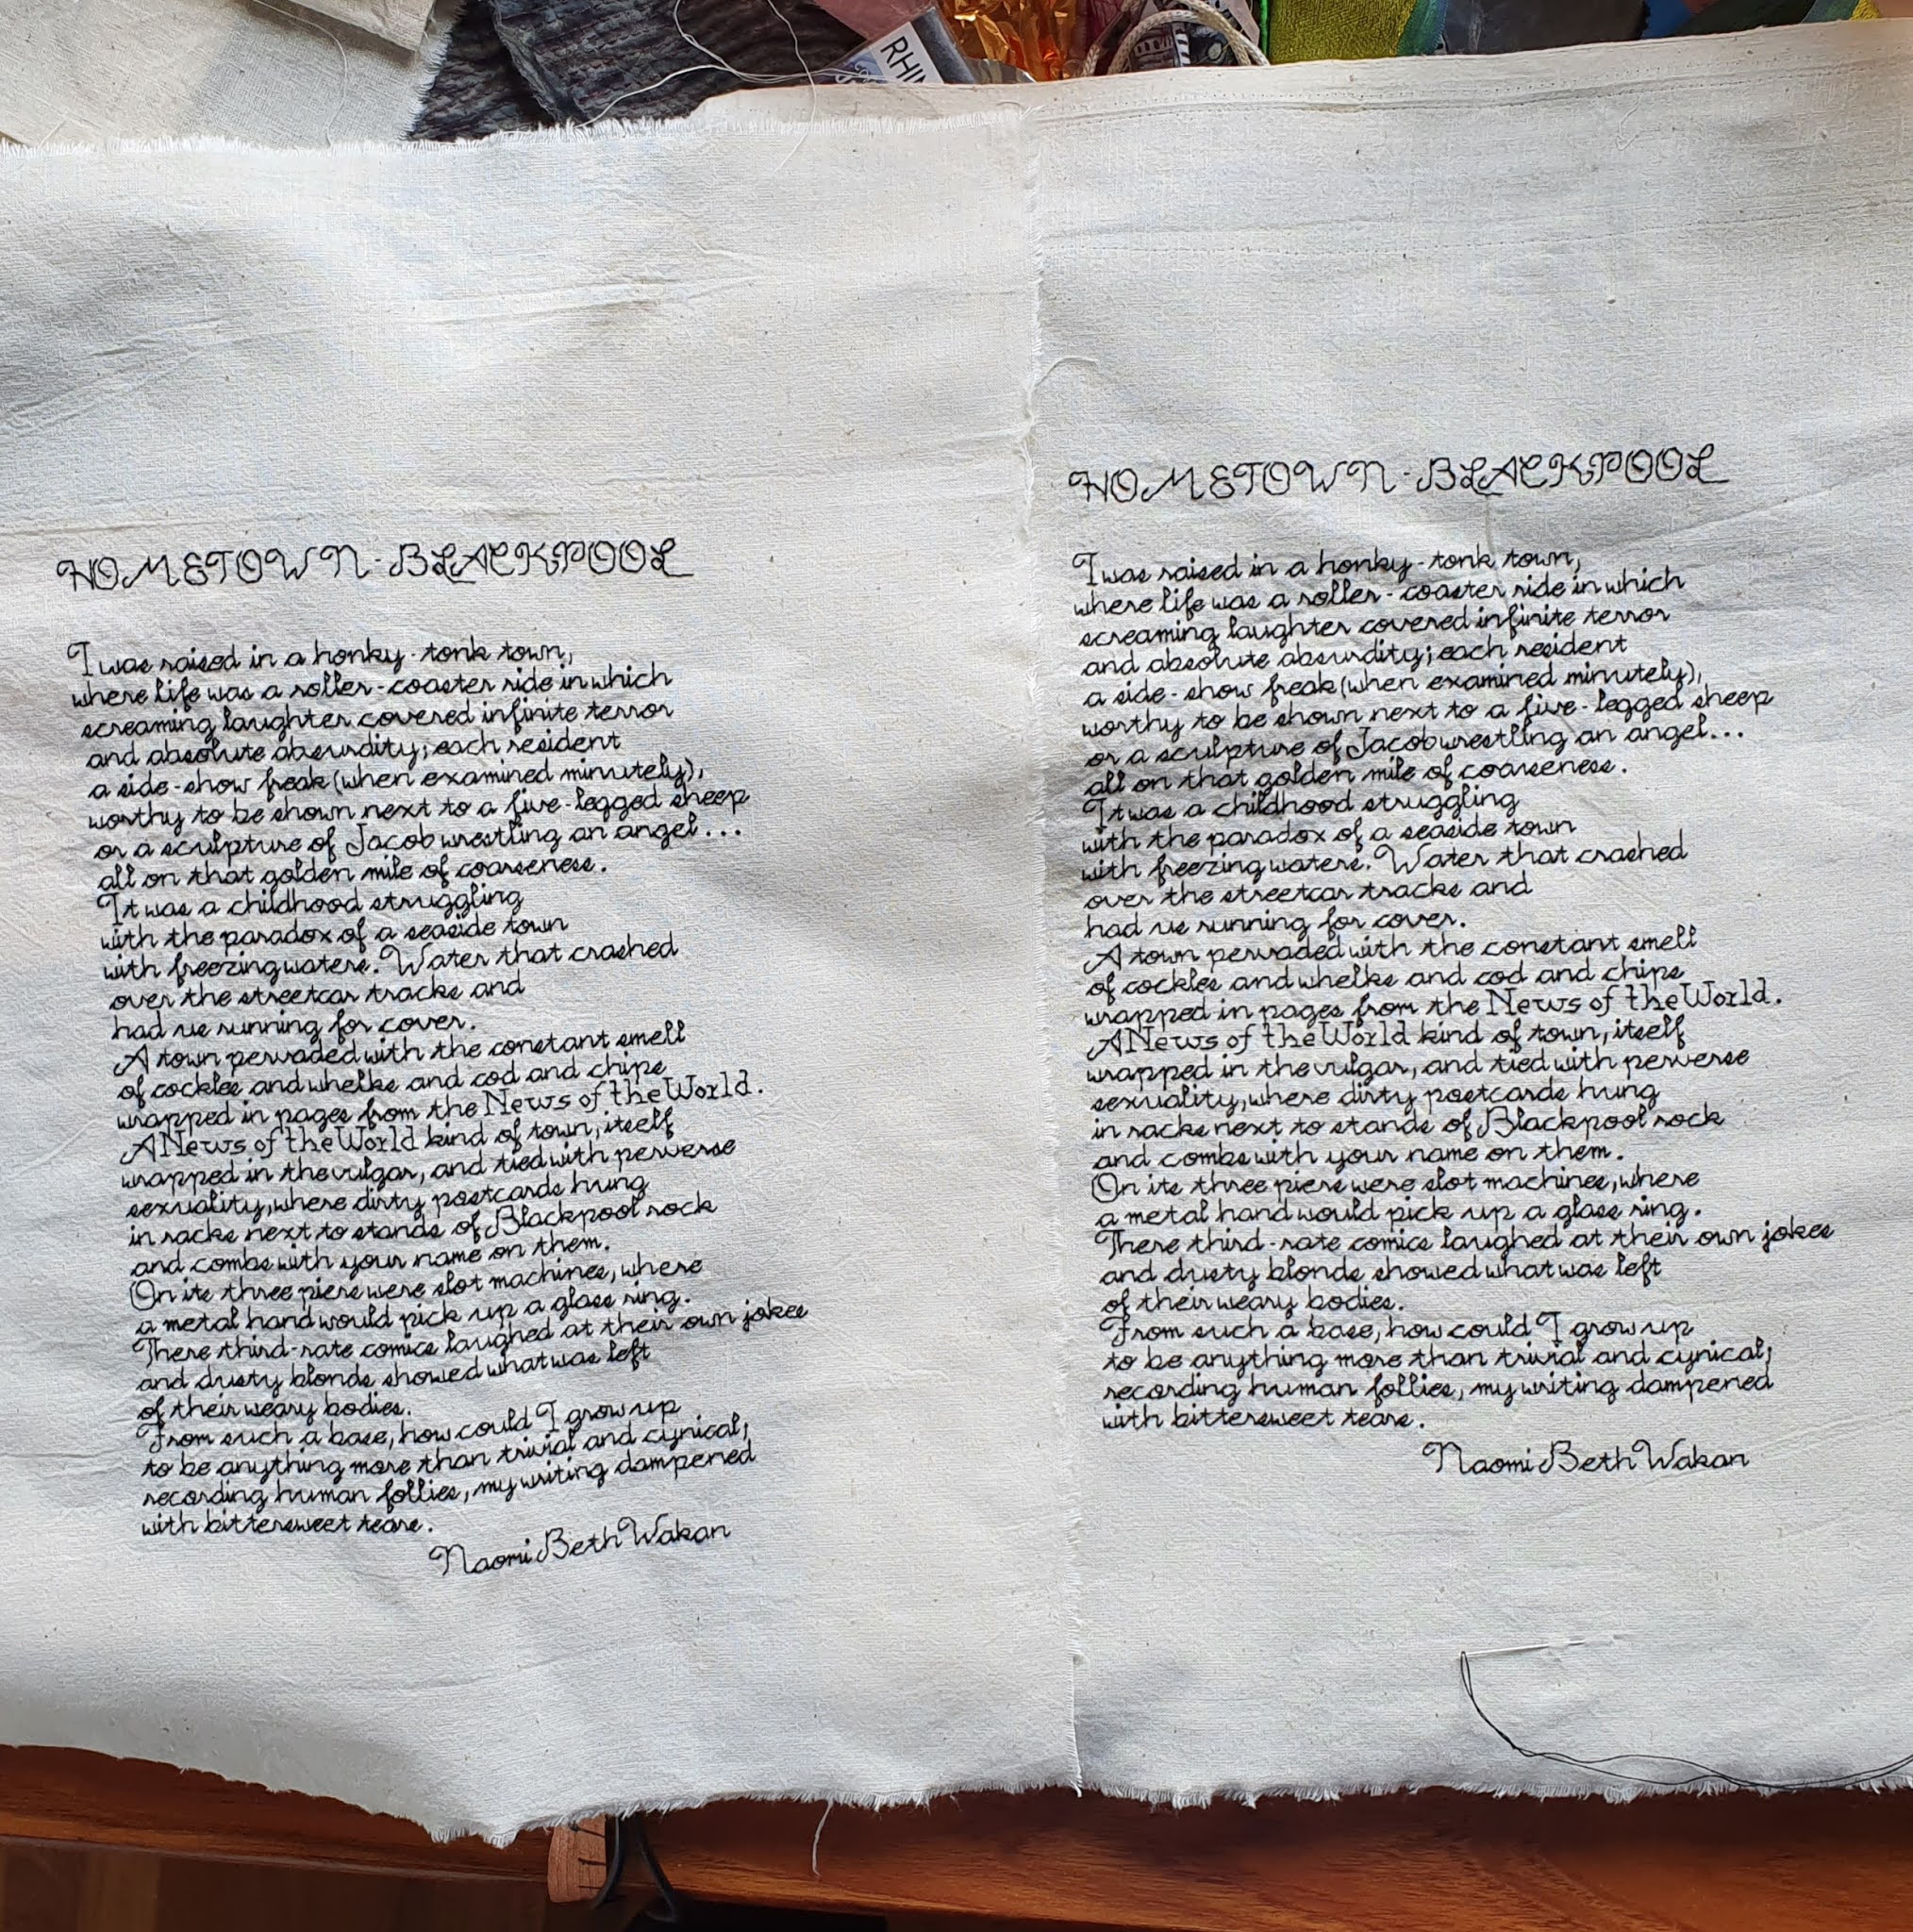 RHI
HOMETOWN-BLACKPOOL
I was raised in a honky-tonk town,
where life was a roller-coaster ride in which
screaming laughter covered infinite terror
and absolute absurdity; each resident
a side-show freak (when examined minutely),
worthy to be shown next to a five-legged sheep
or a sculpture of Jacob wrestling an angel...
all on that golden mile of coarseness.
It was a childhood struggling
with the paradox of a seaside town
with freezing waters. Water that crashed
over the streetcar tracks and
had us running for cover.
A town pervaded with the constant smell
of cockles and whelks and cod and chips
wrapped in pages from the News of the World.
A News of the World kind of town, itself
wrapped in the vulgar, and tied with perverse
sexuality, where dirty postcards hung
in racks next to stands of Blackpool rock
and combs with your name on them.
On its three piers were slot machines, where
a metal hand would pick up a glass ring.
There third-rate comics laughed at their own jokes
and dusty blonds showed what was left
of their weary bodies.
From such a base, how could I grow up
to be anything more than trivial and cynical;
recording human follies, my writing dampened
with bittersweet tears.
Naomi Beth Wakan
HOMETOWN-BLACKPOOL
I was raised in a honky-tonk town,
where life was a roller-coaster ride in which
screaming laughter covered infinite terror
and absolute absurdity; each resident
a side-show freak (when examined minutely),
worthy to be shown next to a five-legged sheep
or a sculpture of Jacob wrestling an angel...
all on that golden mile of coarseness.
It was a childhood struggling
with the paradox of a seaside town
with freezing waters. Water that crashed
over the streetcar tracks and
had us running for cover.
A town pervaded with the constant smell
of cockles and whelks and cod and chips
wrapped in pages from the News of the World.
A News of the World kind of town, itself
wrapped in the vulgar, and tied with perverse
sexuality, where dirty postcards hung
in racks next to stands of Blackpool rock
and combs with your name on them.
On its three piers were slot machines, where
a metal hand would pick up a glass ring.
There third-rate comics laughed at their own jokes
and dusty blonds showed what was left
of their weary bodies.
From such a base, how could I grow up
to be anything more than trivial and cynical;
recording human follies, my writing dampened
with bittersweet tears.
Naomi Beth Wakan